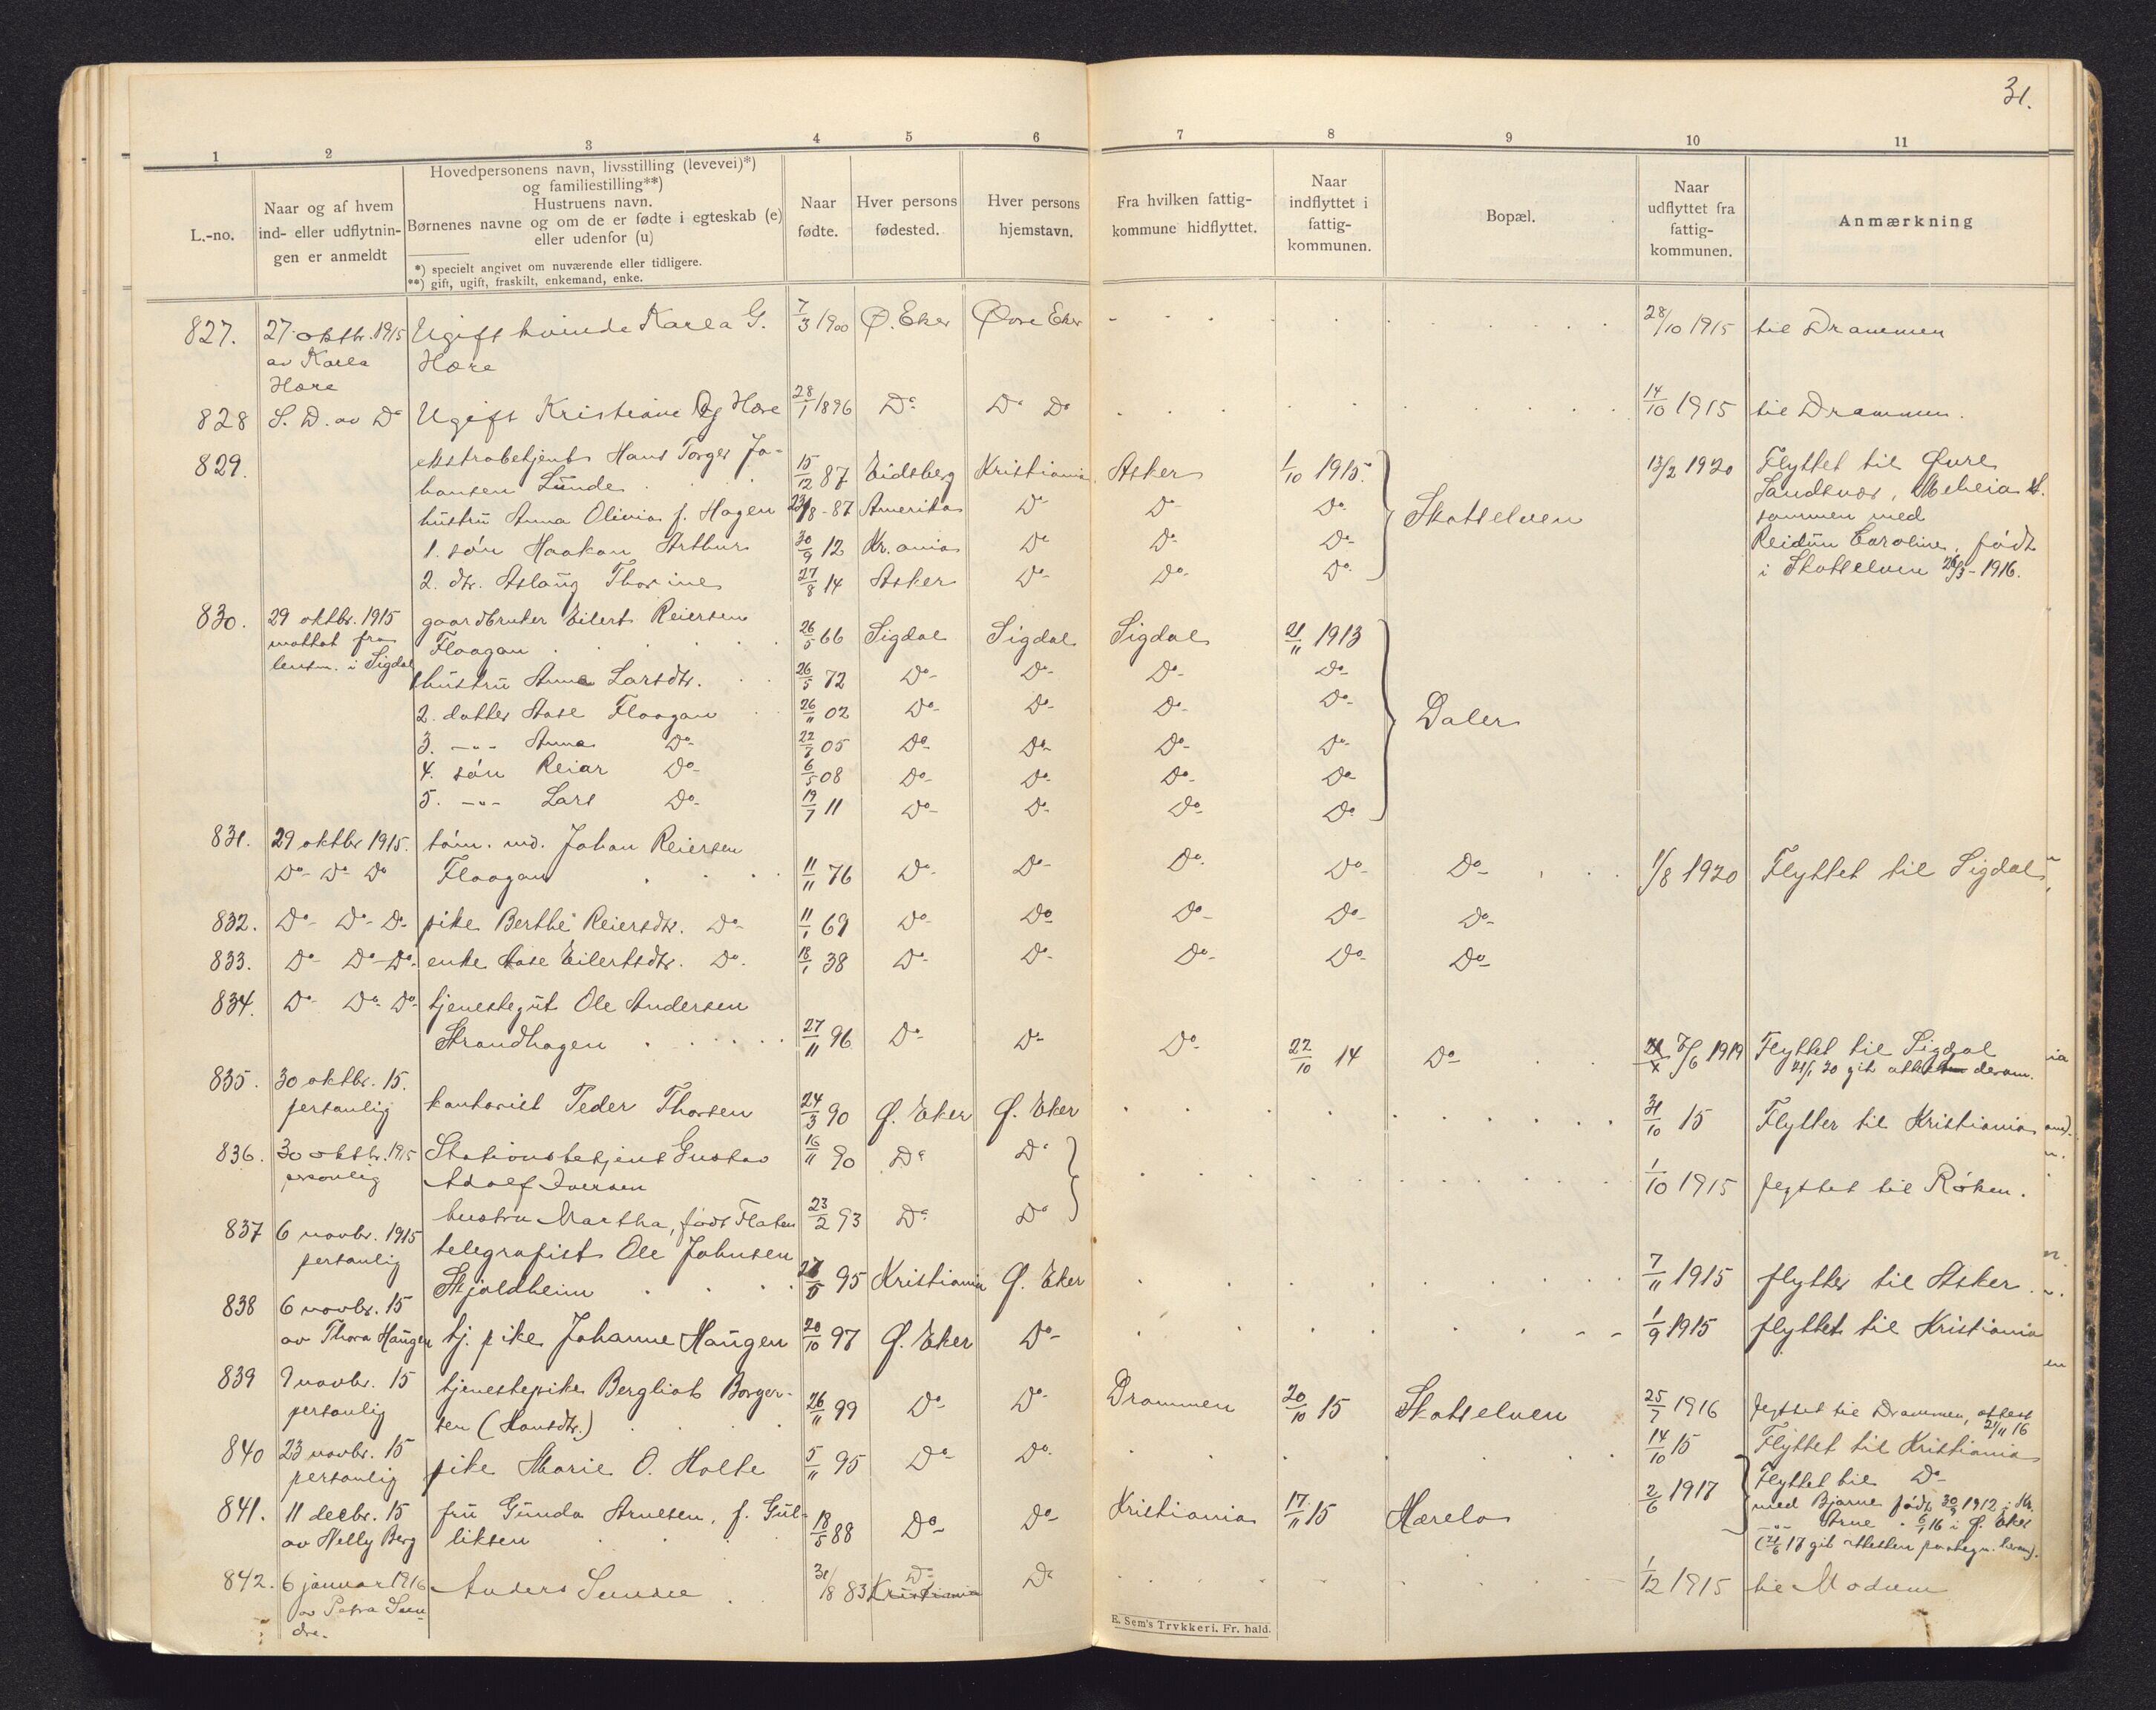 31.
1 2 3 4 5 6 7 8 9 10 11
L.-no.
Naar og af hvem
ind- eller udflytnin-
gen er anmeldt
Hovedpersonens navn, livsstilling (levevei)*)
og familiestilling**)
Hustruens navn.
Børnenes navne og om de er fødte i egteskab (e)
eller udenfor (u)
*) specielt angivet om nuværende eller tidligere.
**) gift, ugift, fraskilt, enkemand, enke.
Naar
fødte.
Hver persons
fødested.
Hver persons
hjemstavn.
Fra hvilken fattig-
kommune hidflyttet.
Naar
indflyttet i
fattig-
kommunen.
Bopæl.
Naar
udflyttet fra
fattig-
kommunen.
Anmærkning
827. 27 oktbr. 1915 Ugift kvinde Karla G. 7/3 1900 Ø. Eker Øvre Eker 28/10 1915 til Drammen
av Karla Hære
Hære
828 S. D. av Do Ugift Kristiane Hære 28/1 1896 Do Do Do 14/10 1915 til Drammen.
829. ekstrabetjent Hans Torger Jo-
hansen Lunde 15/12 87 Eidsberg Kristiania Asker 1/10 1915. Skotselven 13/2 1920 Flyttet til Øvre
Sandsvær, Meheia st.
hustru Anna Olivia f. Hagen 23/8-87 Amerika Do Do Do sammen med
1. søn Haakon Arthur 30/9 12 Kr.ania Do Do Do Reidun Caroline, født
2. dtr. Aslaug Thorine 27/8 14 Asker Do Do Do i Skotselven 26/3-1916.
830. 29 oktbr. 1915 gaardbruker Eilert Reiersen
mottat fra Flaagan 26/5 66 Sigdal Sigdal Sigdal 21/11 1913 Daler
lensm. i Sigdal hustru Anne Larsdtr. 26/5 72 Do Do Do Do
2. datter Aase Flaagan 26/11 02 Do Do Do Do
3. -"- Anna Do 22/7 05 Do Do Do Do
4. søn Reiar Do 6/5 08 Do Do Do Do
5. -"- Lars Do 19/7 11 Do Do Do Do
831. 29 oktbr 1915. tøm. md. Johan Reiersen
Do Do Do Flaagan 11/11 76 Do Do Do Do Do 1/8 1920 Flyttet til Sigdal
832. Do Do Do pike Berthe Reiersdtr. Do 11/1 69 Do Do Do Do Do
833. Do Do Do enke Aase Eilertsdtr. Do 18/1 38 Do Do Do Do Do
834. Do Do Do tjenestegut Ole Andersen
Strandhagen 27/11 96 Do Do Do 22/10 14 Do 7/6 1919 Flyttet til Sigdal
21/1 20 git attest derom.
835. 30 oktbr. 15.
personlig kontorist Peder Thorsen 24/3 90 Ø. Eker Ø. Eker 31/10 15 Flytter til Kristiania
836. 30 oktbr. 1915 Stationsbetjent Gustav 16/11 90 Do Do
personlig Adolf Iversen 1/10 1915 flyttet til Røken.
hustru Martha, født Flaten 23/2 93 Do Do
837 6 novbr. 1915 telegrafist Ole Johnsen
personlig Skjoldheim 27/5 95 Kristiania Ø. Eker 7/11 1915 flytter til Asker.
838 6 novbr. 15
av Thora Haugen tj. pike Johanne Haugen 20/10 97 Ø. Eker Do 1/9 1915 flyttet til Kristiania
839 9 novbr. 15 tjenestepike Bergliot Borger-
personlig sen (Hansdtr.) 26/11 99 Do Do Drammen 20/10 15 Skotselven 25/7 1916 flyttet til Drammen, attest
21/11 16
840 23 novbr. 15
personlig pike Marie O. Holte 5/11 95 Do Do 14/10 15 Flyttet til Kristiania
841. 11 decbr. 15 fru Gunda Arnesen, f. Gul-
av Nelly Berg liksen 18/5 88 Do Do Kristiania 17/11 15 Hærela 2/6 1917 Flyttet til Do
med Bjarne født 30/9 1912 i Kr.
-"- Arne " 6/1 16 i Ø. Eker
842. 6 januar 1916 Anders 31/8 83 Kristiania Do Do 1/12 1915 til Modum
av Petra
E. Sem's Trykkeri. Fr. hald.